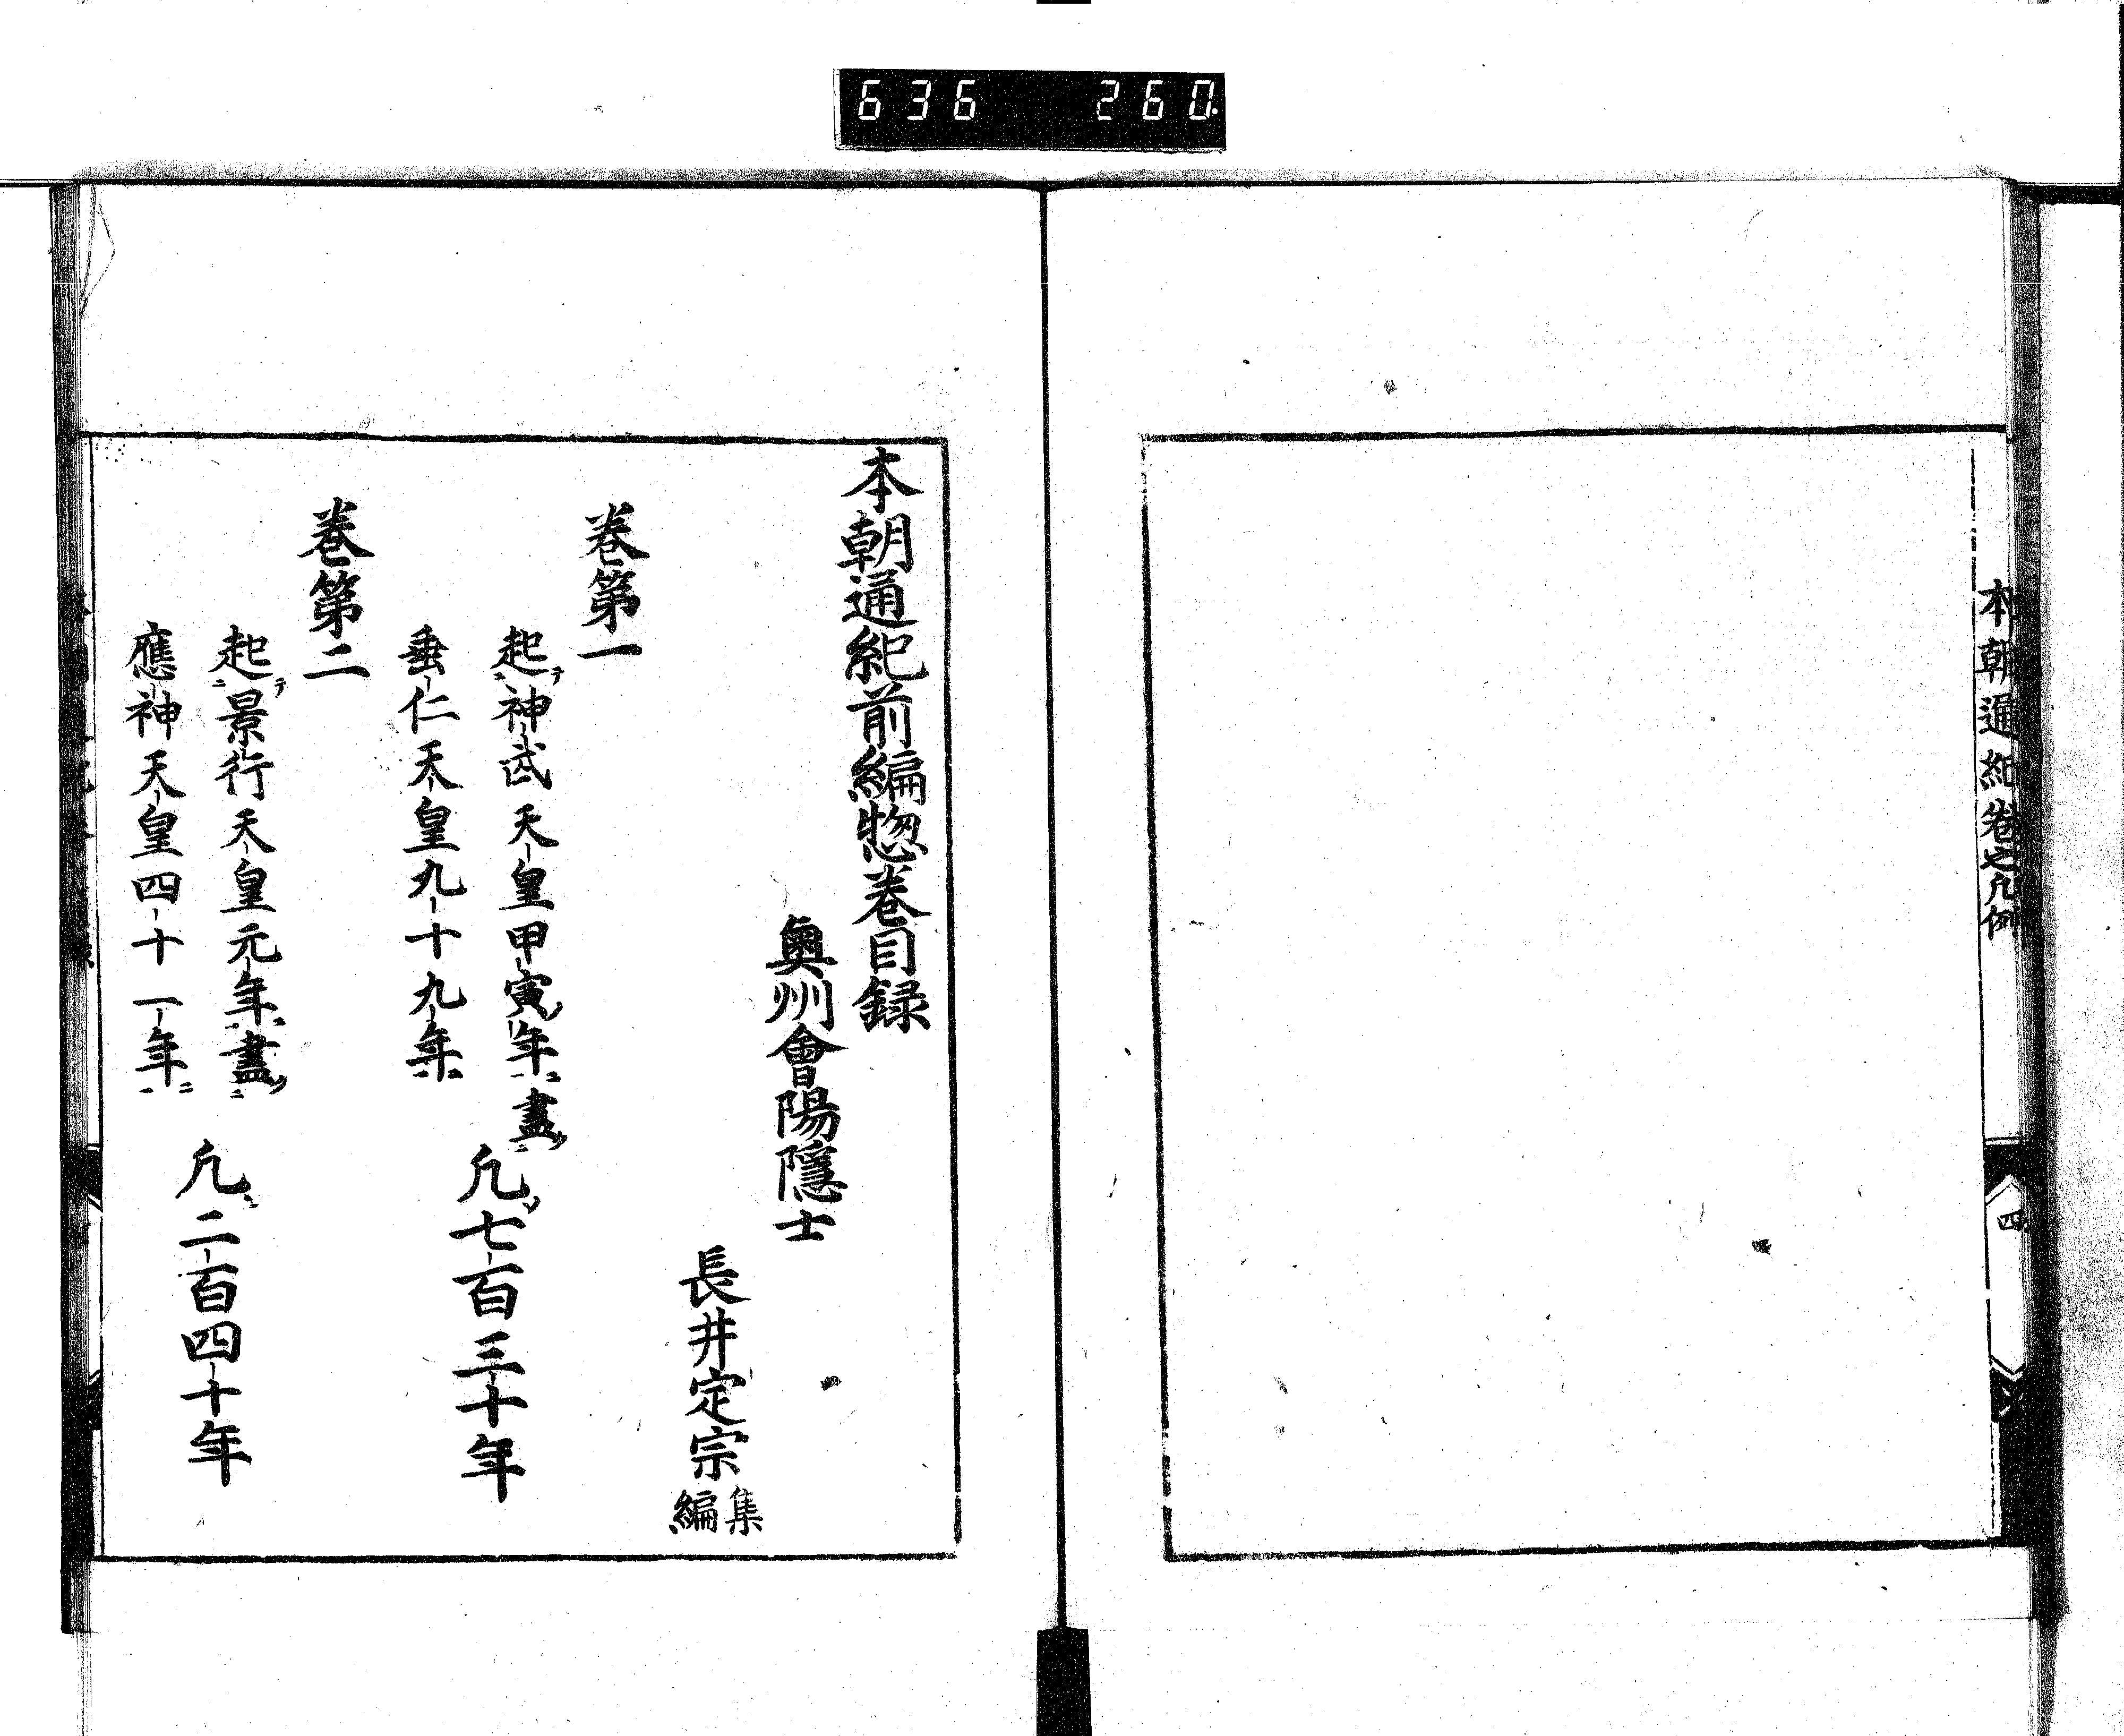 636 260
本朝通紀卷之凡例
四
本朝通紀前編惣卷目録
奥州會陽隱士
長井定宗集編
卷第一
起神武天皇甲寅年盡
垂仁天皇九十九年
凡七百三十年
卷第二
起景行天皇元年盡
應神天皇四十一年
凡二百四十年